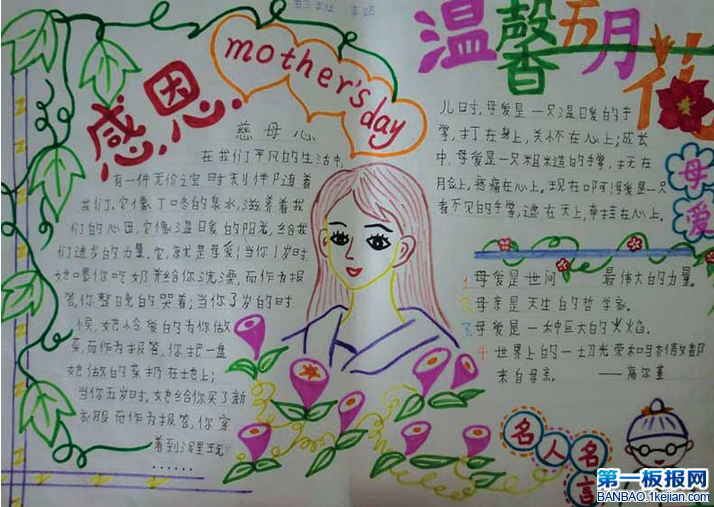 感恩
mother's day
温馨五月花
慈母心
在我们平凡的生活中,
有一件无价之宝时刻伴随着
我们.它像丁咚的泉水,滋养着我
们的心田,它像温暖的阳光,给我
们进步的力量.它就是母爱!当你1岁时
她喂你吃奶并给你洗澡,而作为报
答,你整晚的哭着;当你3岁的时
候,她怜爱的为你做
菜,而作为报答,你把一盘
她做的菜扔在地上;
当你五岁时,她给你买了新
衣服而作为报答,你穿
着到泥里玩
......
儿时,母爱是一只温暖的手
掌,打在身上,关怀在心上;成长
中,母爱是一只粗糙的手掌,抚在
脸上,疼痛在心上.现在
看不见的手掌,遮在天上,牵挂在心上.
母爱
1.母爱是世间 最伟大的力量.
2.母亲是天生的哲学家.
3.母爱是一种巨大的火焰.
4.世界上的一切光荣和骄傲都
来自母亲. ——高尔基
名人名言
第一板报网
BANBAO.1kejian.com